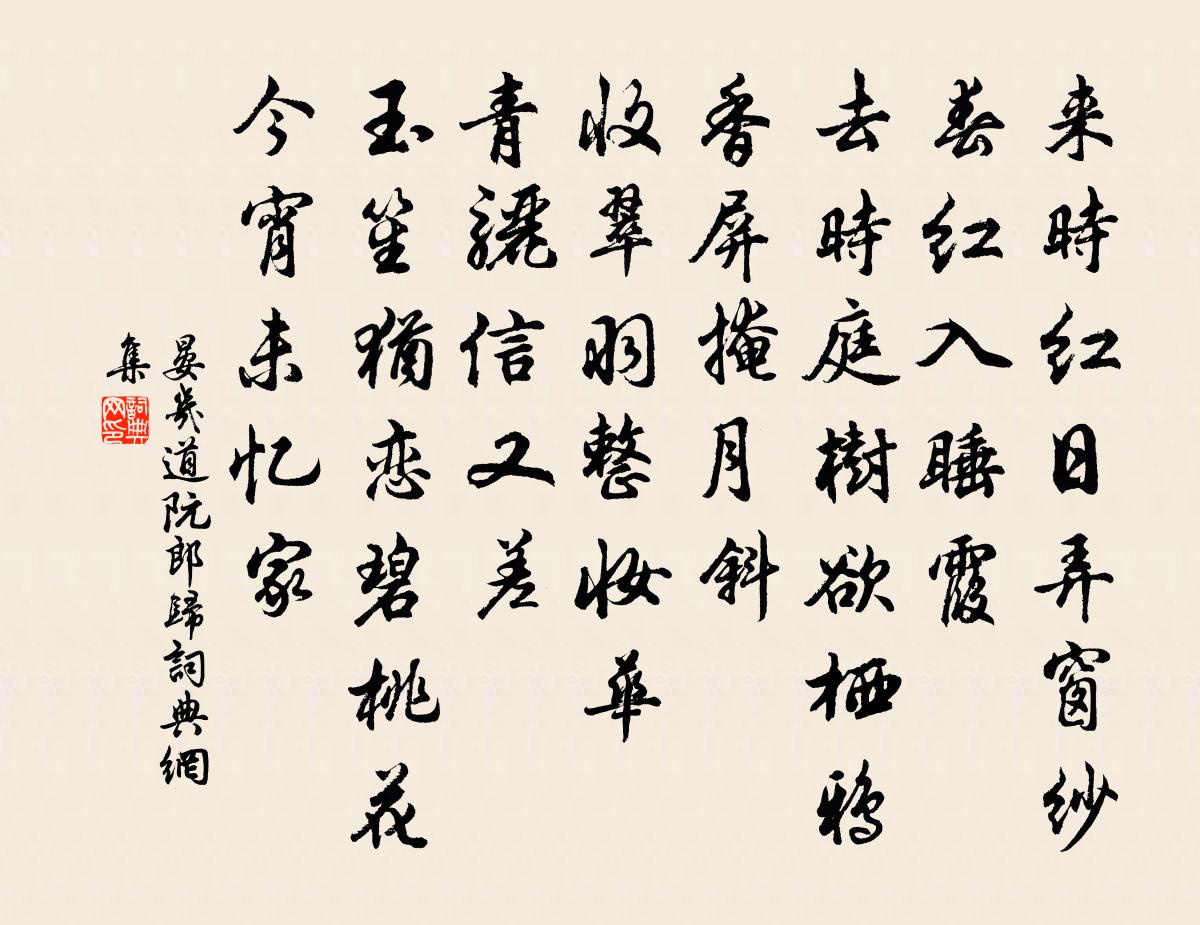 来時红日弄窗纱
春红入睡霞
去時庭樹欲栖鸦
香屏掩月斜
收翠羽整妆華
青骊信又差
玉笙犹恋碧桃花
今宵未忆家
晏幾道阮郎歸詞典網
集
詞典网印